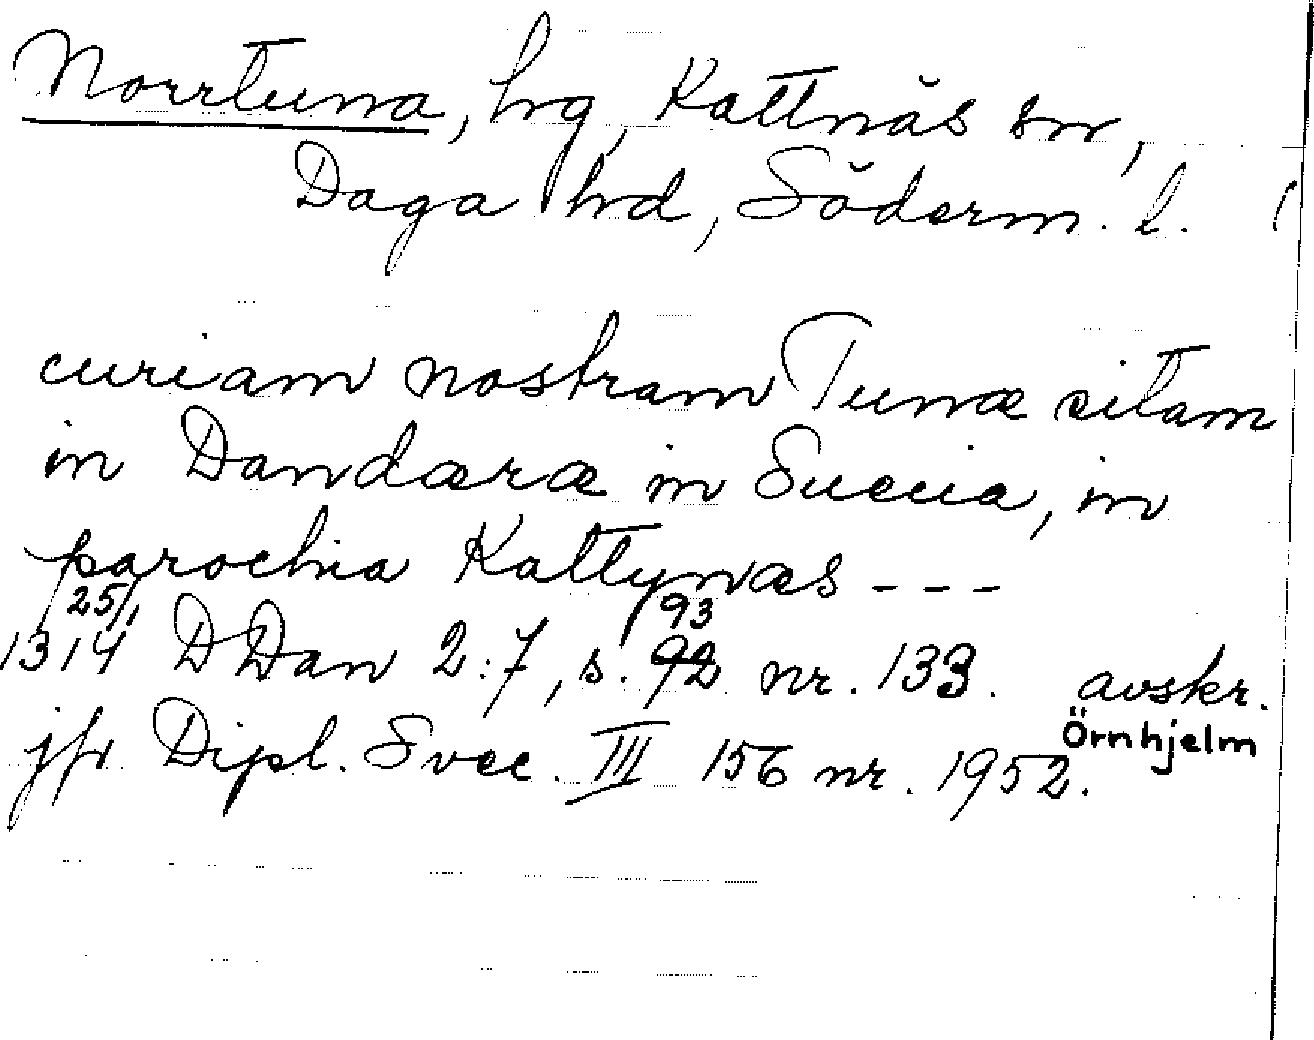 Norrtuna, hg, Kattnäs sn,
Daga hd, Söderm. l. (
curiam nostram Tunæ sitam
in Dandæræ in Sueuia, in
parochia Kattynæs ---
25/1 93
1314 DDan 2:7, s. 92 nr. 133. avskr.
Örnhjelm
jfr Dipl. Svec. III 156 nr. 1952.